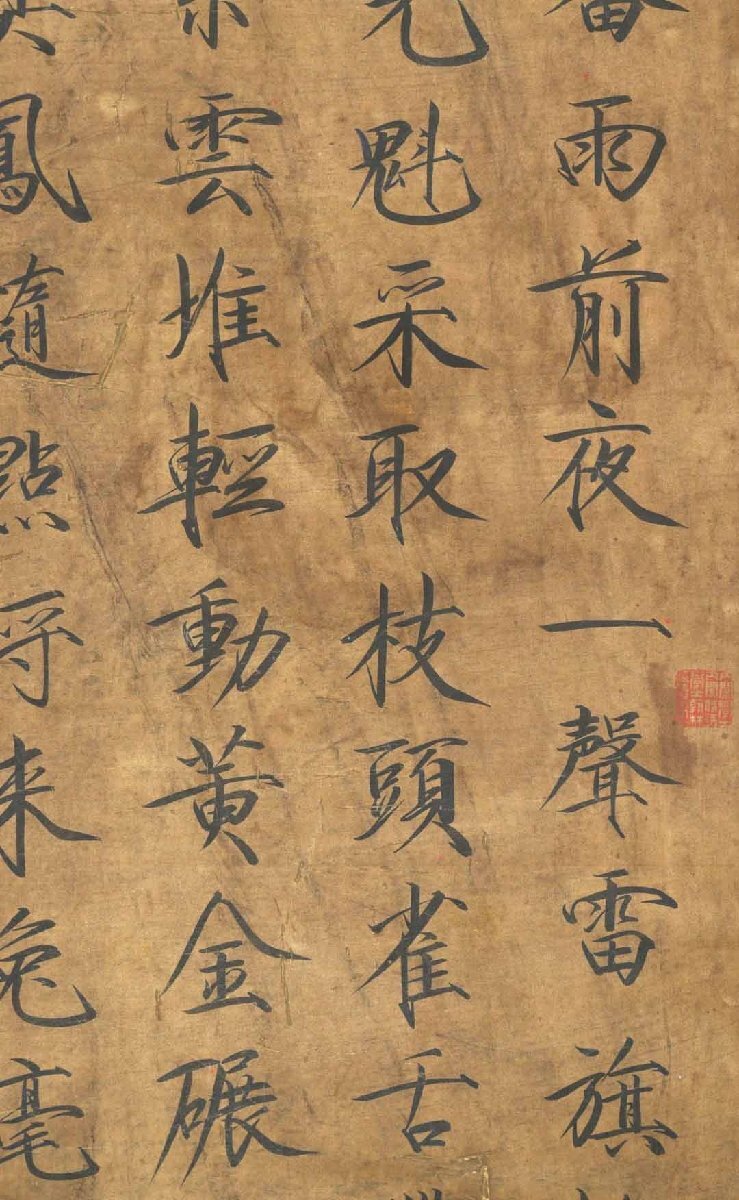 雨前夜一聲雷旗
魁采取枝頭雀舌
雲堆輕動黃金碾
鳳隨點呼来兔毫